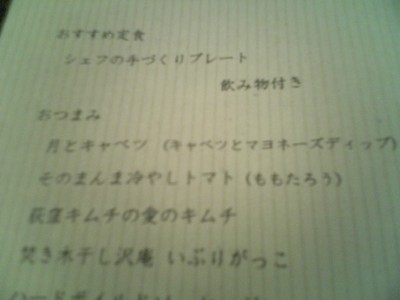 おすすめ定食
シェフの手づくりプレート
飲み物付き
おつまみ
月とキャベツ (キャベツとマヨネーズディップ)
そのまんま冷やしトマト (ももたろう)
荻窪キムチの愛のキムチ
焚き木干し沢庵 いぶりがっこ